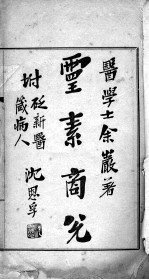 醫學士余巖著
靈素商兌
坿砭新醫
箴病人
沈恩孚